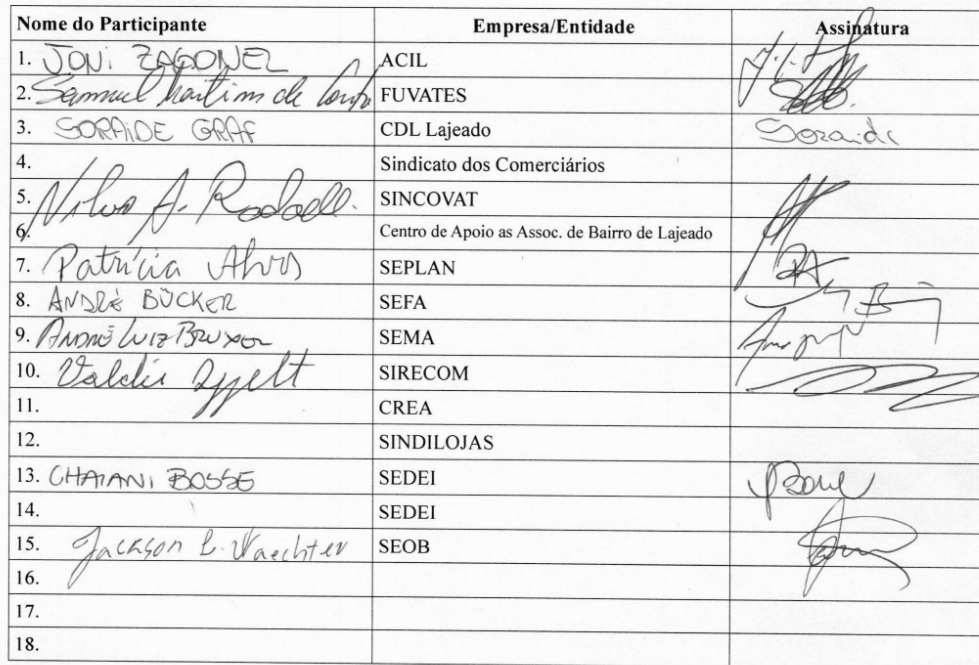 Nome do Participante Empresa/Entidade Assinatura
1. JONI ZAGONEL ACIL
2. Samuel Martins de FUVATES
3. SORAIDE GRAF CDL Lajeado Soraide
4. Sindicato dos Comerciários
5. Nilva A. SINCOVAT
6. Centro de Apoio as Assoc. de Bairro de Lajeado
7. Patrícia Alves SEPLAN PA
8. ANDRÉ BÜCKER SEFA
9. ANDRÉ LUIZ SEMA
10. SIRECOM
11. CREA
12. SINDILOJAS
13. CHAIANI BOSSE SEDEI
14. SEDEI
15. Jackson L. Waechter SEOB
16.
17.
18.